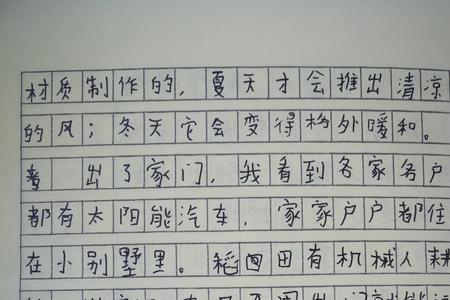 材质制作的，夏天才会推出清凉
的风；冬天它会变得格外暖和。
出了家门，我看到各家各户
都有太阳能汽车，家家户户都住
在小别墅里。稻田田有机械人耕